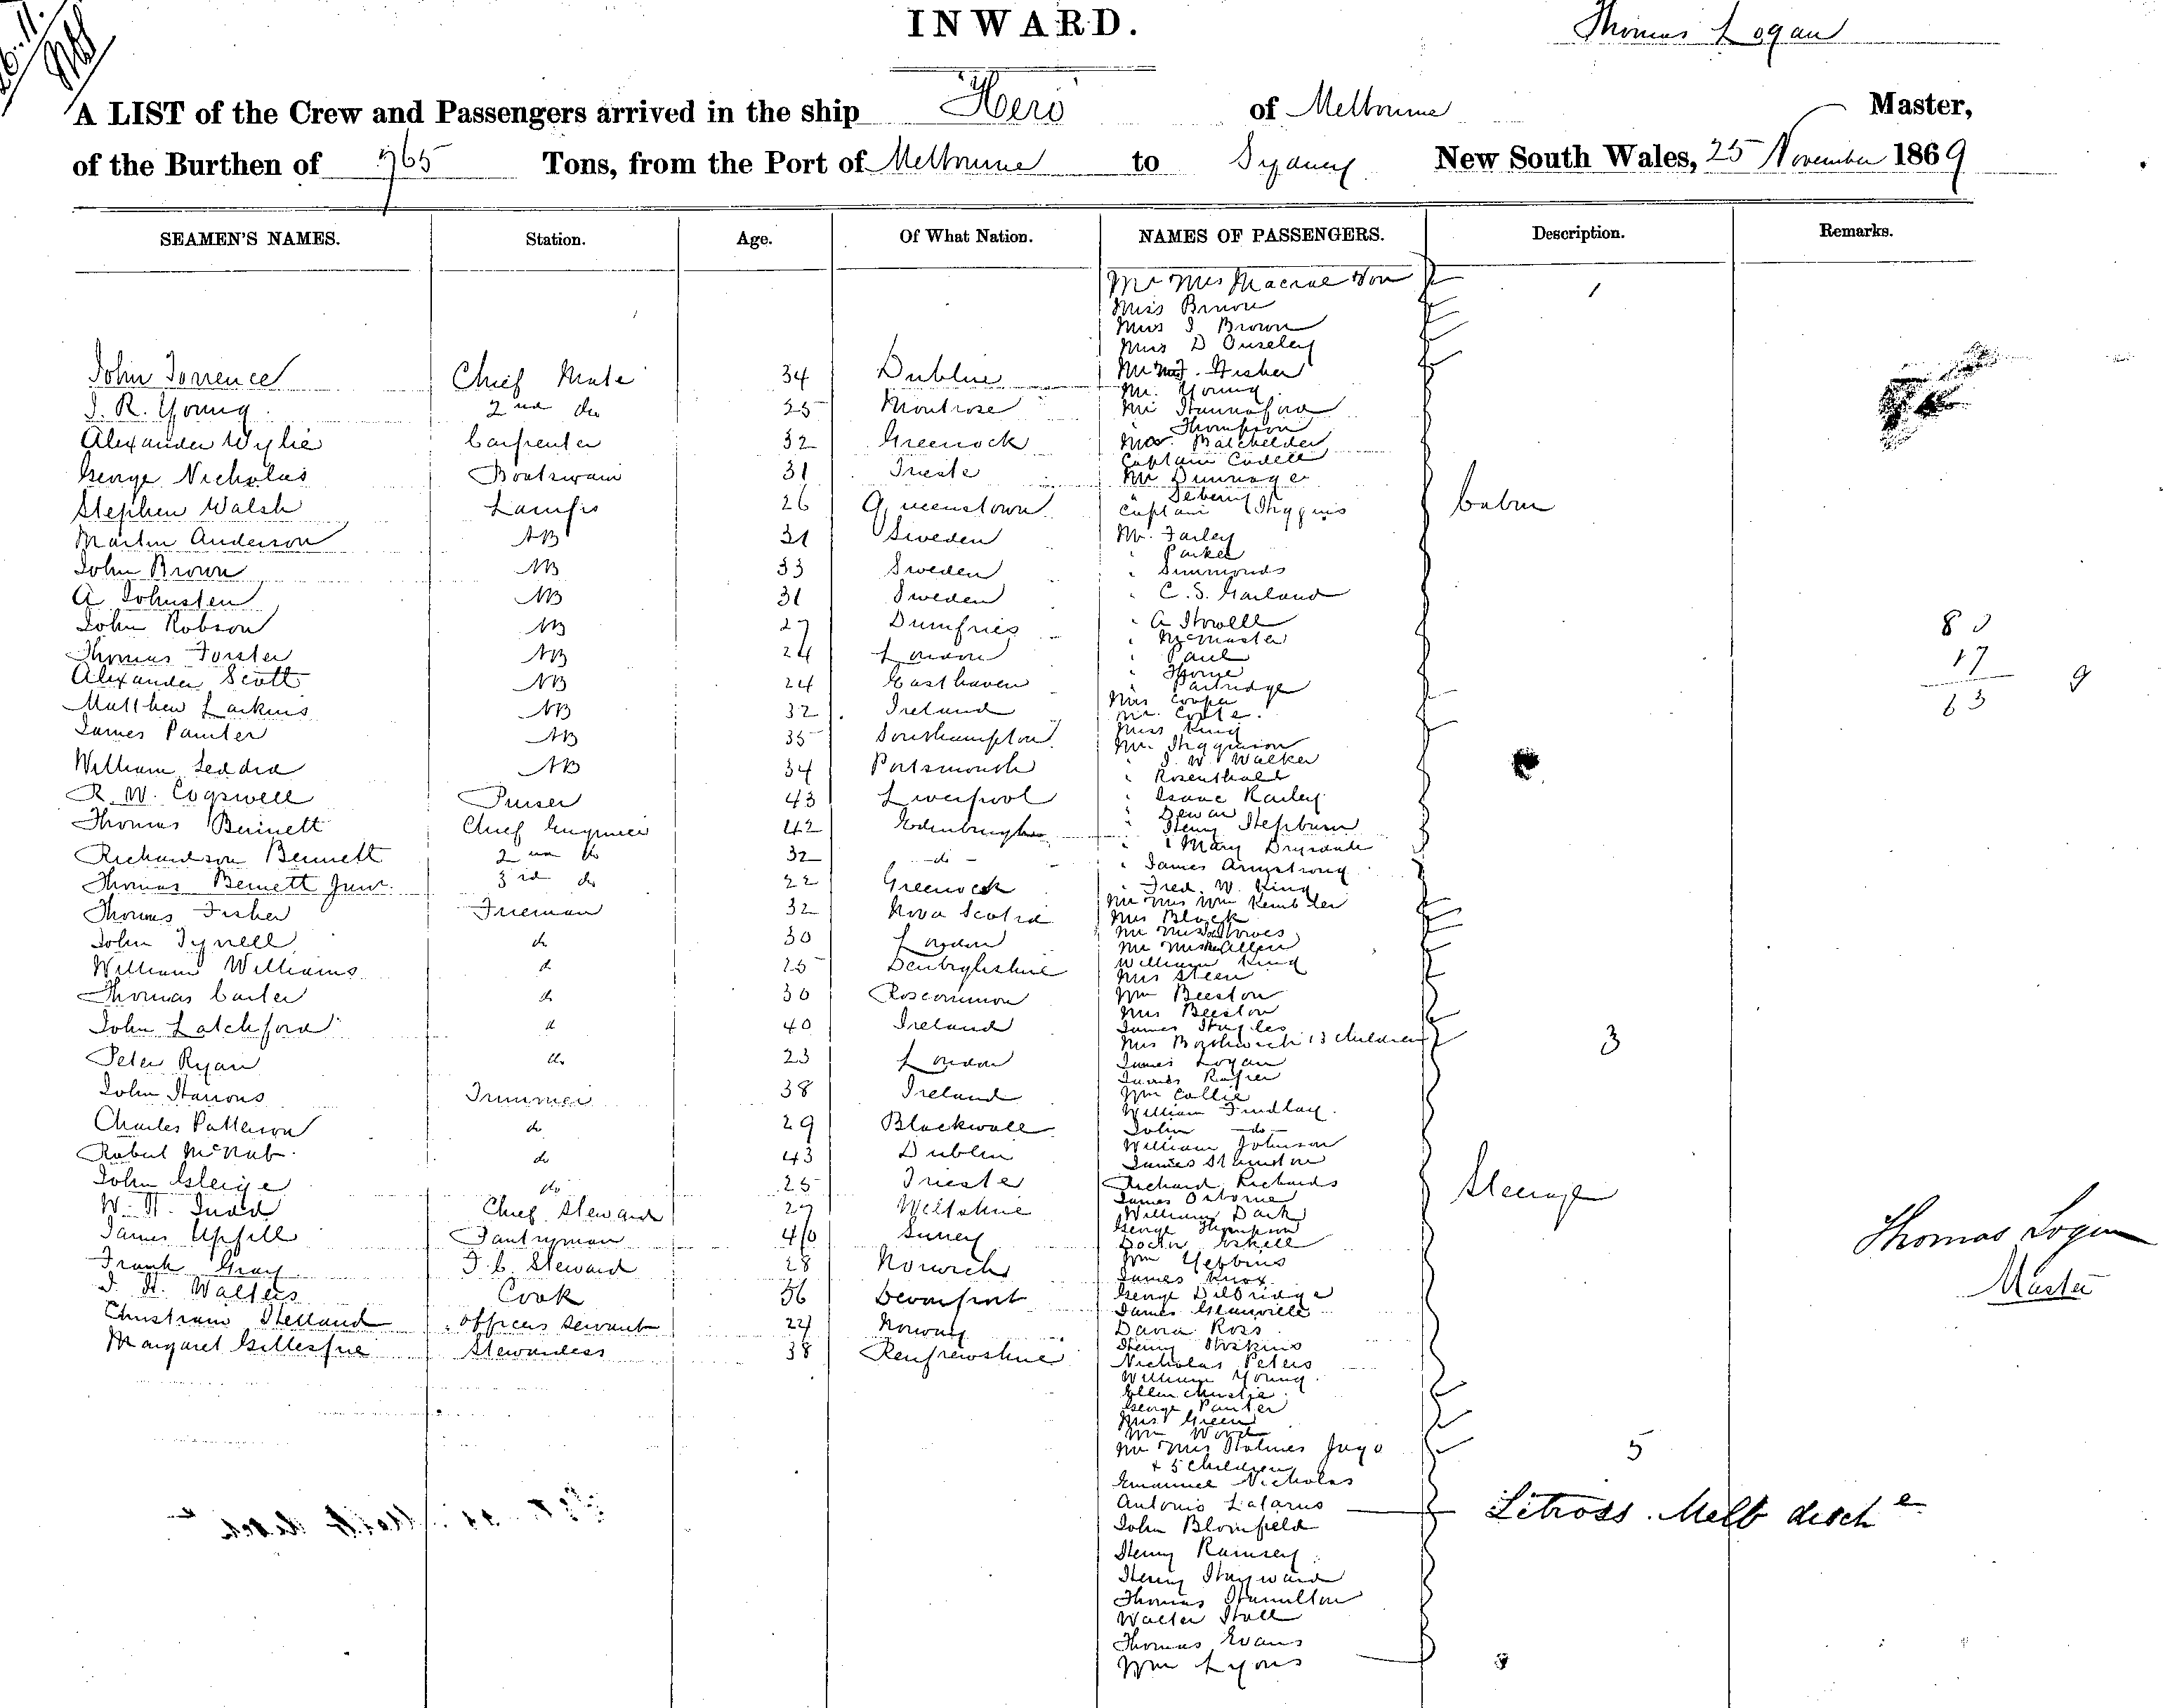 INWARD.
Thomas Logan
A LIST of the Crew and Passengers arrived in the ship "Hero" of Melbourne Master,
of the Burthen of 765 Tons, from the Port of Melbourne to Sydney New South Wales, 25 November 1869
SEAMEN'S NAMES. Station. Age. Of What Nation. NAMES OF PASSENGERS. Description. Remarks.
John Torrence Chief Mate 34 Dublin
J. R. Young 2nd do 25 Montrose
Alexander Wylie Carpenter 32 Greenock
George Nicholas Boatswain 31 Trieste
Stephen Walsh Lamps 26 Queenstown
Martin Anderson AB 31 Sweden
John Brown AB 33 Sweden
A Johnsten AB 31 Sweden
John Robson AB 27 Dumfries
Thomas Forster AB 24 London
Alexander Scott AB 24 Easthaven
Matthew Larkins AB 32 Ireland
James Painter AB 35 Southampton
William AB 34 Portsmouth
R. W. Cogswell Purser 43 Liverpool
Thomas Bennett Chief Engineer 42 Edenburgh
Richardson Bennett 2nd do 32 - do -
Thomas Bennett Junr. 3rd do 22 Greenock
Thomas Fisher Fireman 32 Nova Scotia
John Tyrell do 30 London
William Williams do 25 Denbighshire
Thomas Carter do 30 Roscommon
John Latchford do 40 Ireland
Peter Ryan do 23 London
John Harrons Trimmer 38 Ireland
Charles Patterson do 29 Blackwall
Robert McNab do 43 Dublin
John do 25 Trieste
W. H. Chief Steward 27 Wiltshire
James Upfill Pantryman 40 Surrey
Frank Gray F. C. Steward 28 Norwich
J. H. Walters Cook 56 Devonport
Christian Helland officers servant 24 Norway
Margaret Gillespie Stewardess 38 Renfrewshire
Mr Mrs Macrae Son 1
Miss Brown
Miss J Brown
Miss D Ouseley
Mr Mrs J. Fisher
Mr. Young
Mr Hannaford
" Thompson
Mr. Batchelder
Captain Cadell
Mr Dunnage
"
Captain Higgins
Mr. Farley
" Parker
" Simmonds
" C. S. Garland
" A Howell
" McMaster
" Paul
" Thorne
" Partridge
Mrs Cooper
Mr.
Miss King
Mr. Higginson
" J. W. Walker
" Rosenthall
" Isaac Railey
" Dewar
" Henry Hepburn
" " Mary Drysdale
" James Armstrong
" Fred. W. King
Mr Mrs Wm
Mrs Block
Mr Mrs
Mr Mrs Allen
William King
Mrs Steen
Wm Beeston
Mrs Beeston
James
Mrs Borthwick & 3 children 3
James Logan
James
Wm Collie
William Findlay
John -do-
William Johnson
James
Richard Richards
James Osborne
William Dark
George Thompson
Doctor
Wm
James Knox
George Dilbridge
James Glanville
David Ross
Henry Hoskins
Nicholas Peters
William Young
Ellen Christie
George Painter
Mrs Green
Wm Wood
Mr Mrs Holmes Jago 5
+ 5 Children
Emanuel Nicholas
Antonio Lazarus
John Blomfield
Henry Ramsey
Henry Hayward
Thomas Hamilton
Walter Hall
Thomas Evans
Wm Lyons
Cabin
Steerage
80
17
63 9
Thomas Logan
Master